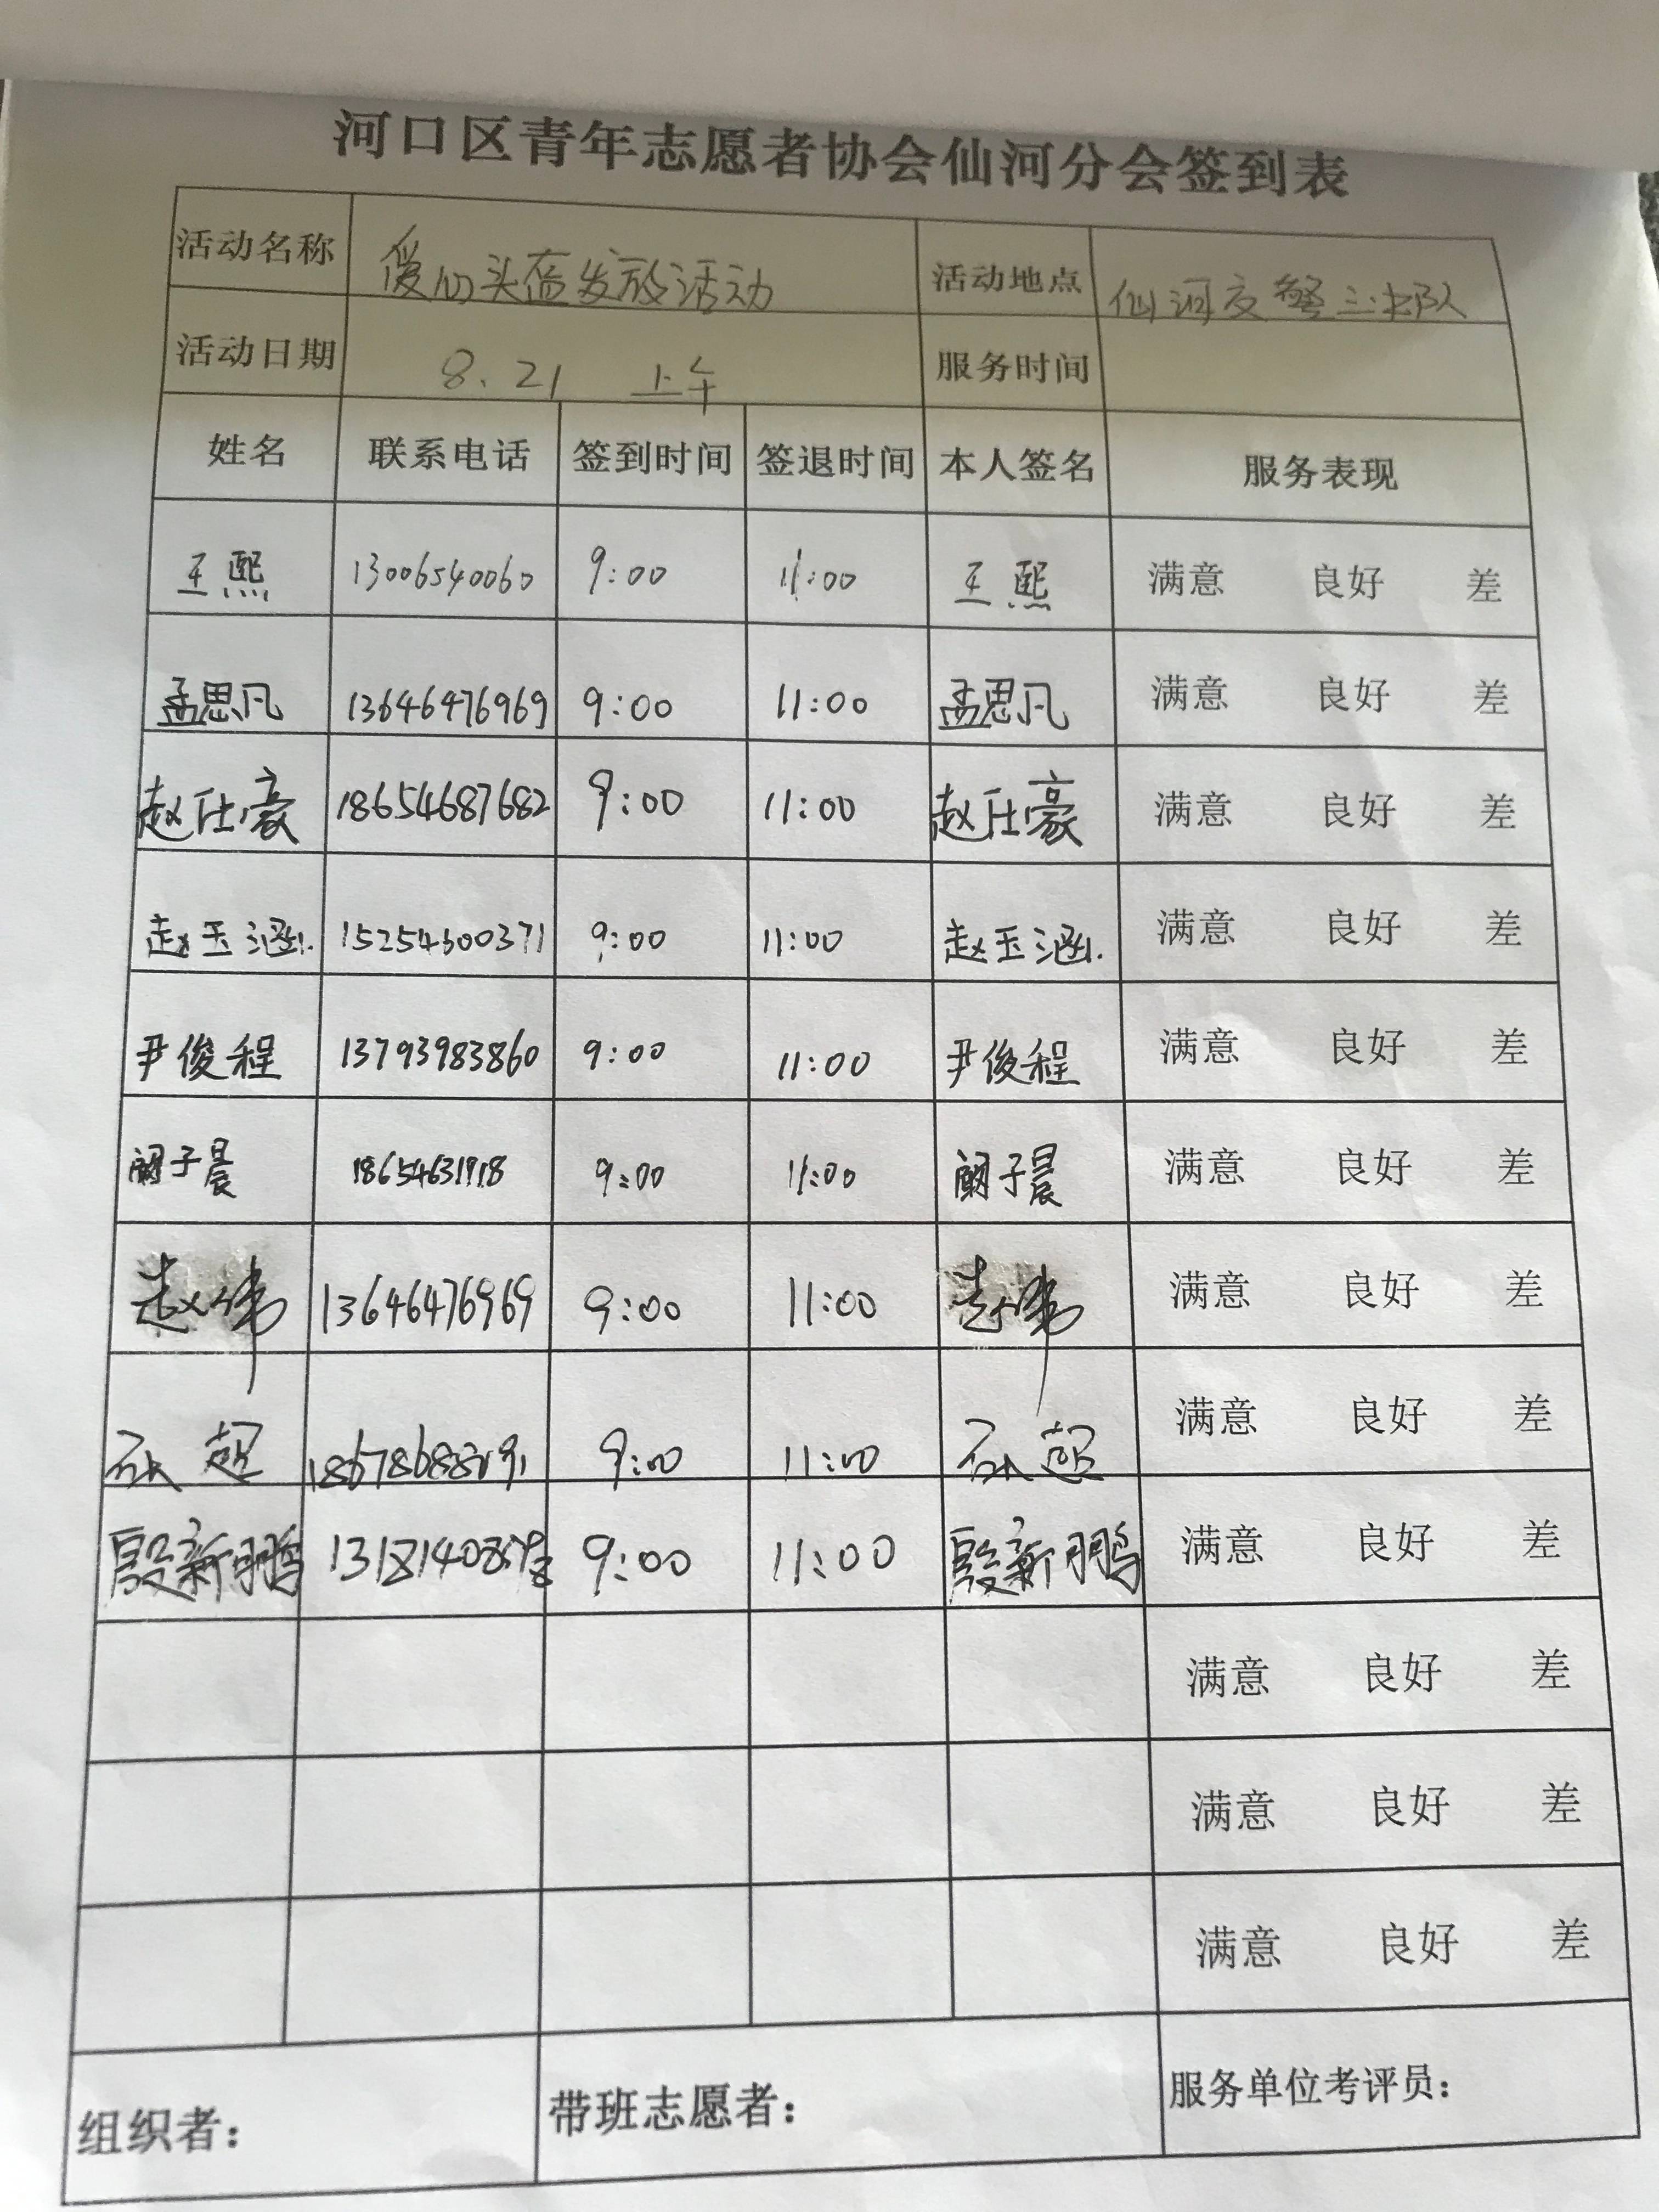 河口区青年志愿者协会仙河分会签到表
活动名称 爱心头盔发放活动 活动地点 仙河交警三大队
活动日期 8.21 上午 服务时间
姓名 联系电话 签到时间 签退时间 本人签名 服务表现
王熙 13006540060 9:00 11:00 王熙 满意 良好 差
孟思凡 13646476969 9:00 11:00 孟思凡 满意 良好 差
赵仕豪 18654687682 9:00 11:00 赵仕豪 满意 良好 差
赵玉涵 15254600371 9:00 11:00 赵玉涵 满意 良好 差
尹俊程 13793983860 9:00 11:00 尹俊程 满意 良好 差
阚子晨 9:00 11:00 阚子晨 满意 良好 差
赵伟 13646476969 9:00 11:00 赵伟 满意 良好 差
超 9:00 11:00 超 满意 良好 差
殷新鹏 9:00 11:00 殷新鹏 满意 良好 差
满意 良好 差
满意 良好 差
满意 良好 差
组织者： 带班志愿者： 服务单位考评员：